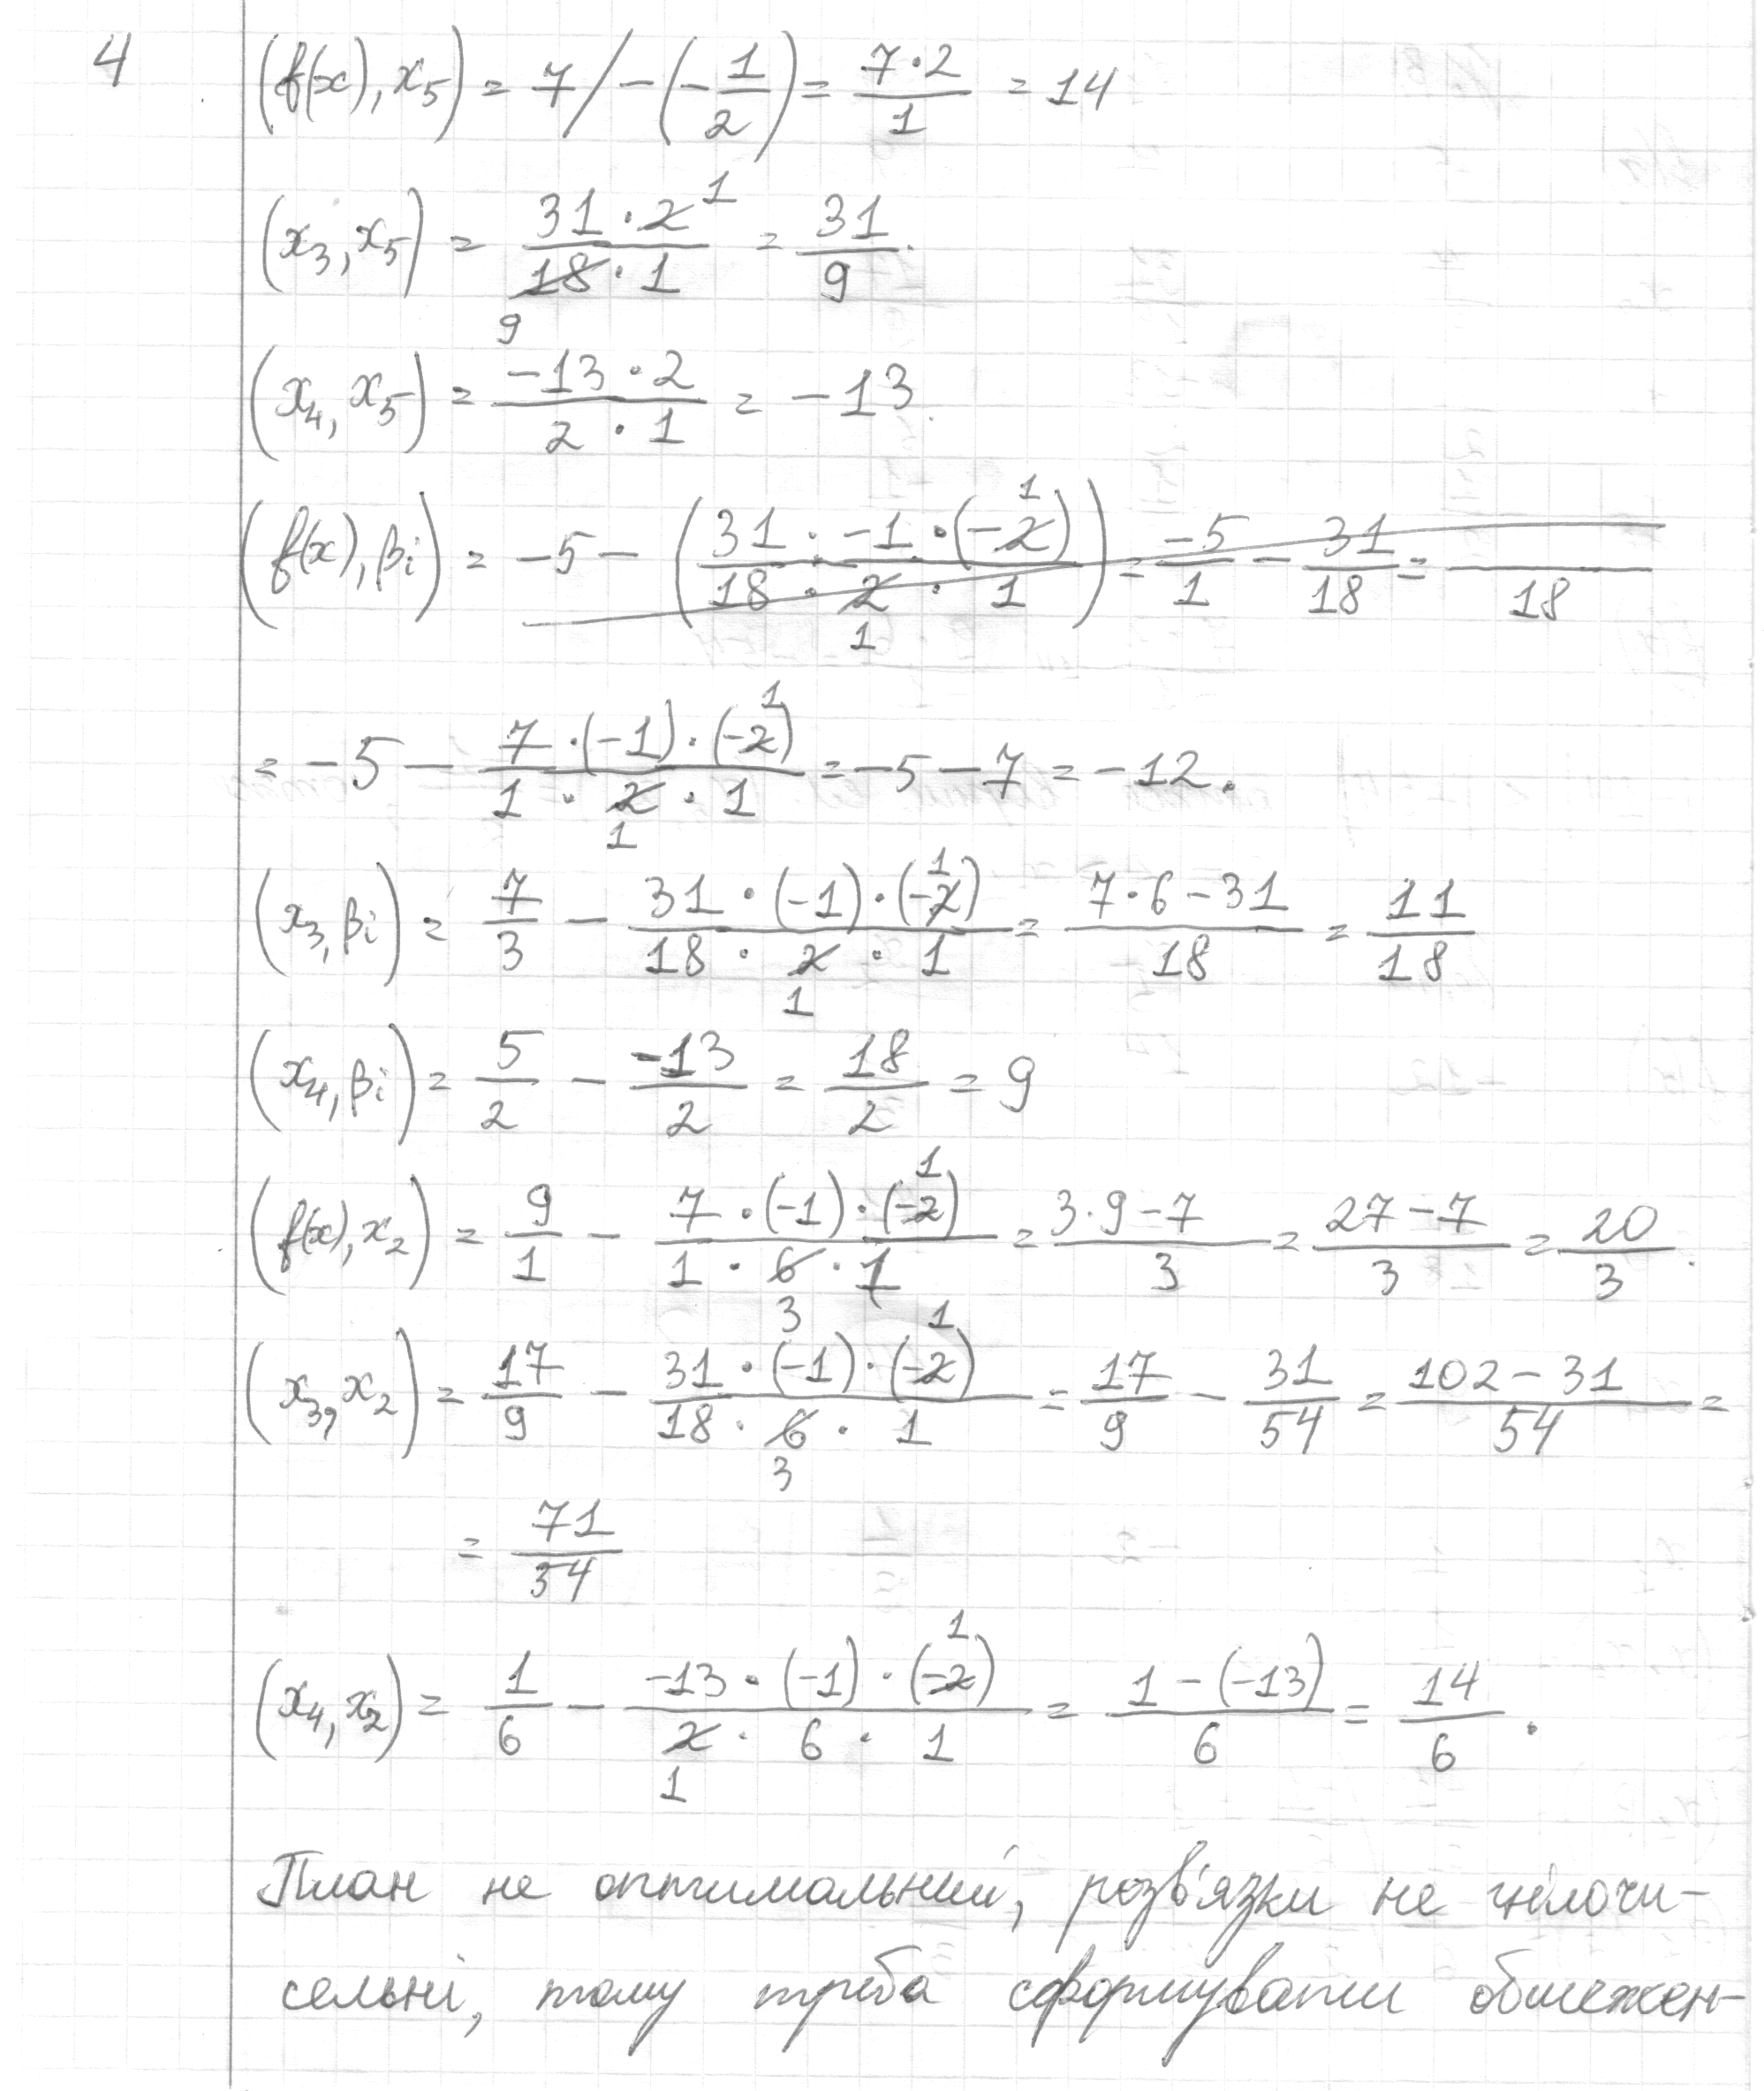 4
(f(x), x₅) = 7 / -(-1/2) = 7·2/1 = 14
(x₃, x₅) = 31·2/18·1 = 31/9.
(x₄, x₅) = -13·2/2·1 = -13.
(f(x), βi) = -5 - (31·-1·(-2)/18·2·1) = -5/1 - 31/18 = /18
= -5 - 7·(-1)·(-2)/1·2·1 = -5 - 7 = -12.
(x₃, βi) = 7/3 - 31·(-1)·(-2)/18·2·1 = 7·6-31/18 = 11/18
(x₄, βi) = 5/2 - -13/2 = 18/2 = 9
(f(x), x₂) = 9/1 - 7·(-1)·(-2)/1·6·1 = 3·9-7/3 = 27-7/3 = 20/3.
(x₃, x₂) = 17/9 - 31·(-1)·(-2)/18·6·1 = 17/9 - 31/54 = 102-31/54 =
= 71/54
(x₄, x₂) = 1/6 - -13·(-1)·(-2)/2·6·1 = 1-(-13)/6 = 14/6.
План не оптимальний, розв'язки не цілочи-
сельні, тому треба сформувати обмежен-